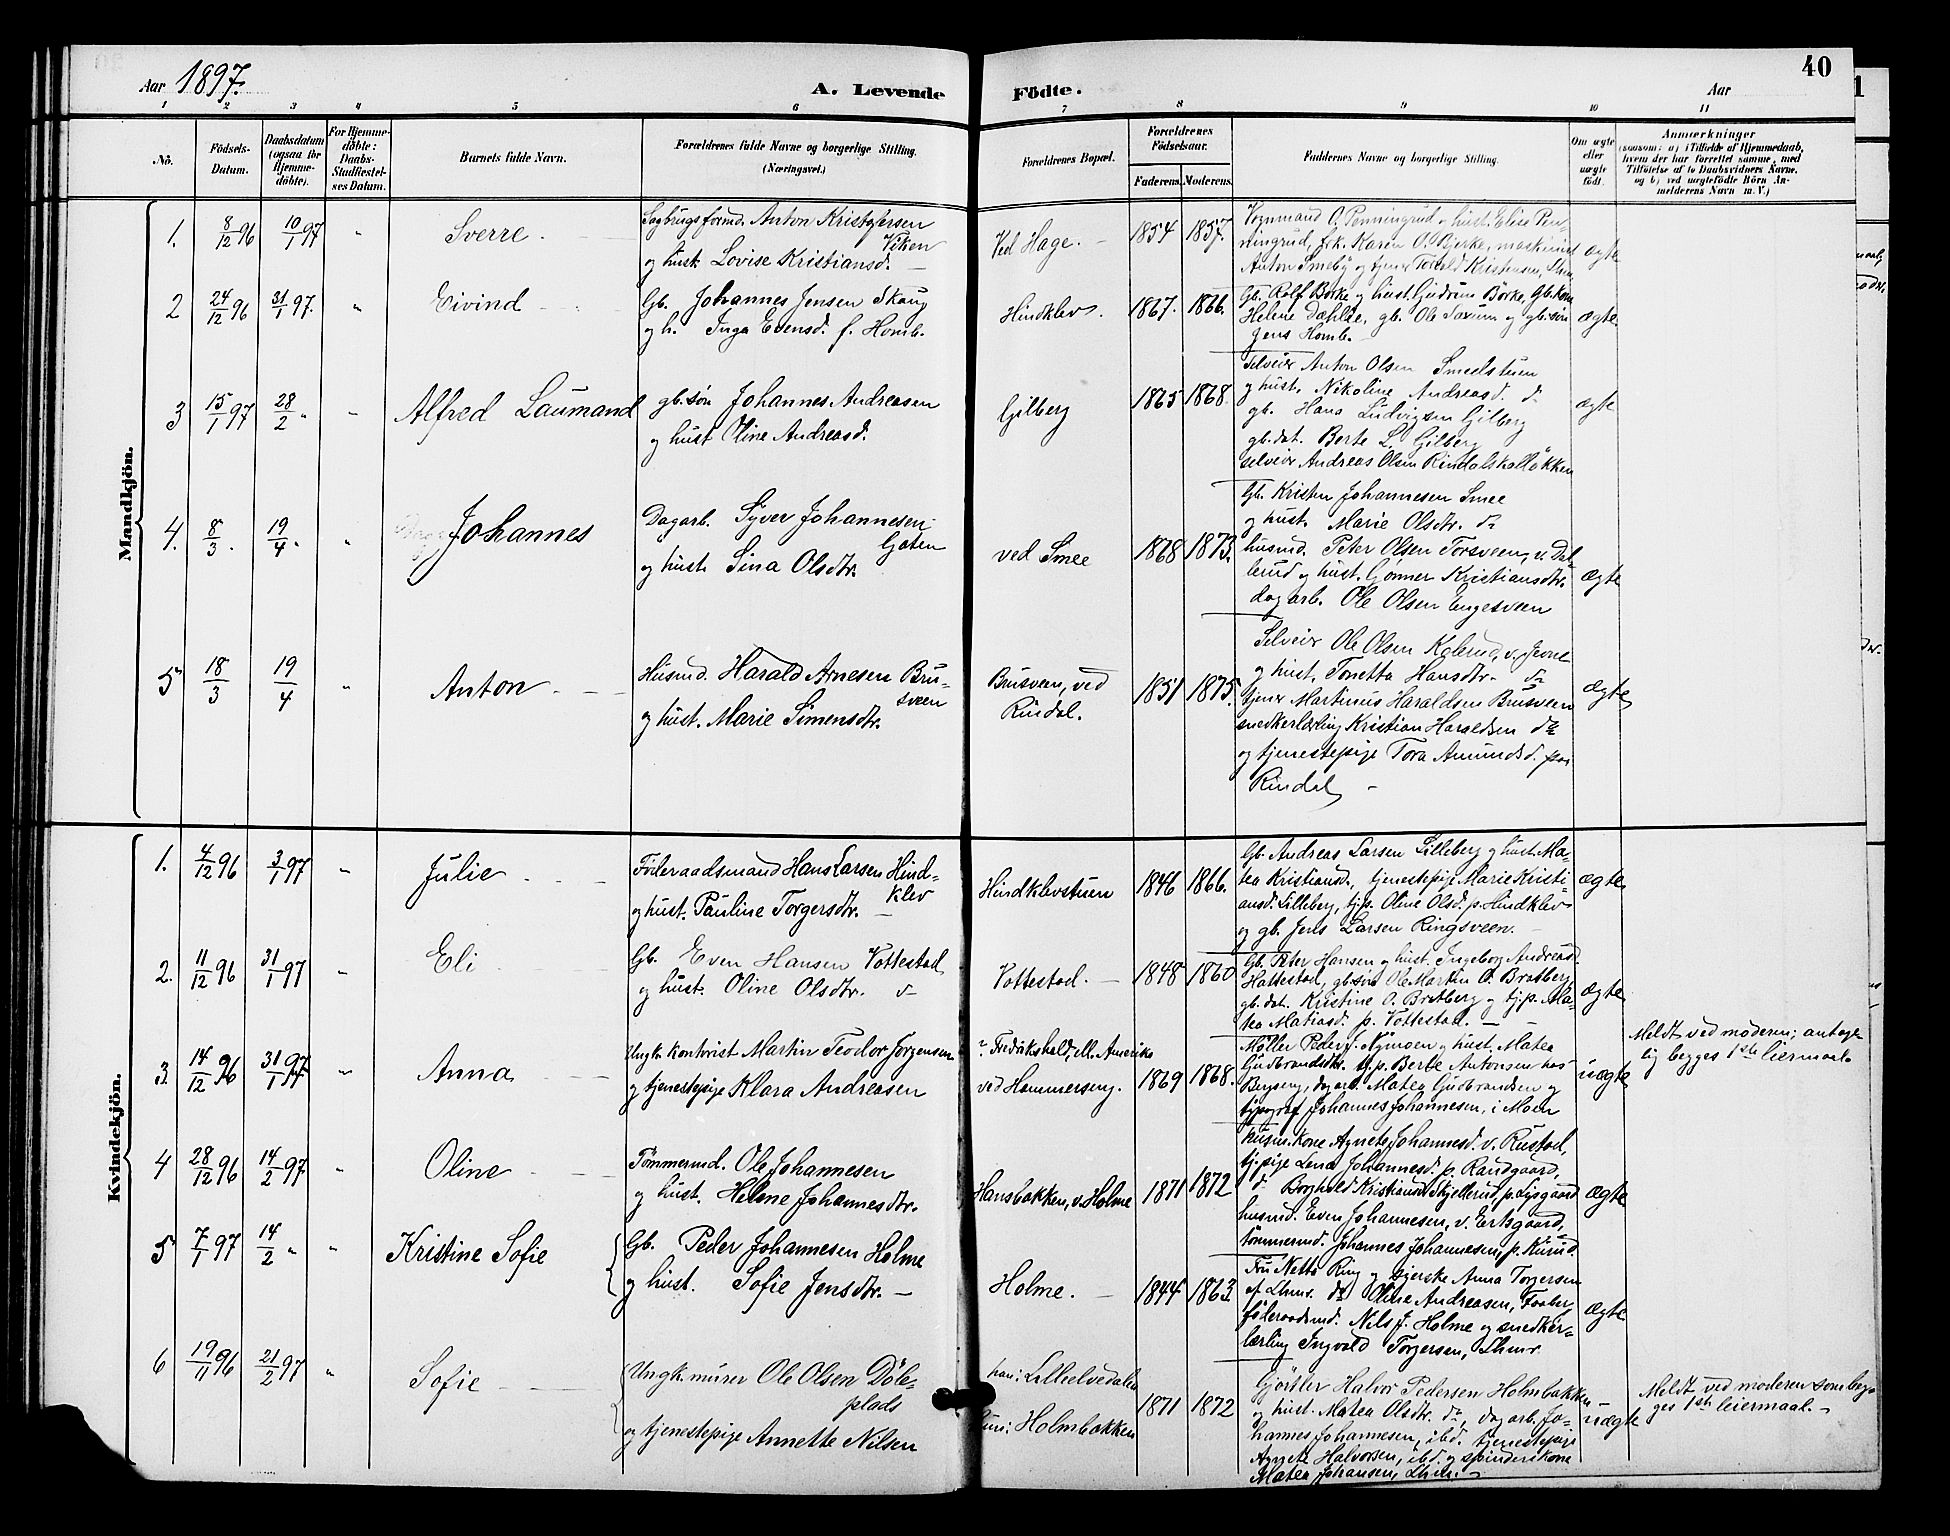 Aar 1897.
A. Levende Födte.
Aar
40
1 2 3 4 5 6 7 8 9 10 11
No.
Födsels-Datum.
Daabsdatum (ogsaa for Hjemme-döbte).
For Hjemme-döbte: Daabs-Stadfæstel-ses Datum.
Barnets fulde Navn.
Forældrenes fulde Navne og borgerlige Stilling.
(Næringsvei.)
Forældrenes Bopæl.
Forældrenes Födselsaar.
Faderens. Moderens.
Faddernes Navne og borgerlige Stilling.
Om ægte eller uægte født.
Anmærkninger
(saasom: a) i Tilfælde af Hjemmedaab,
hvem der har forrettet samme, med
Tilföielse af to Daabsvidners Navne,
og b) ved uægtefödte Börn An-
melderens Navn m. V.)
Mandkjön.
1. 8/12 96 10/1 97 " Sverre.
Sagbrugsformd. Anton Kristofersen
Viken
og hust. Lovise Kristiansd.
Ved Hage. 1854 1857.
Vognmand O. Penningrud o hust. Elise Pen-
ningrud, frk. Karen O. Bjerke, maskinist
Anton Smeby og tjener Torvald Kristensen, Lhmr
ægte
2 24/12 96 31/1 97. " Eivind
Gb. Johannes Jensen Skaug
og h. Inga Evensd. f. Homb.
Hindklev. 1867. 1866.
Gb. Rolf Börke og hust. Gudrun Börke, Gb.kone
Helene Dæhlie, gb. Ole Saxum og gb.søn
Jens Homb.
ægte.
3 15/1 97 28/2 " " Alfred Laumand
gb.søn Johannes Andreasen
og hust Oline Andreasd.
Gilberg 1865 1868
Selveier Anton Olsen Smeelstuen
og hust. Nikoline Andreasd. do
gb. Hans Ludvigsen Gilberg
gb.dat. Berte L. Gilberg
selveier Andreas Olsen Rindalskalløkken
ægte
4. 8/3. 19/4 " " Johannes
Dagarb. Syver Johannesen
Gaten
og hust. Sina Olsdtr.
ved Smee 1868 1873.
Gb. Kristen Johannesen Smee
og hust. Marie Olsdtr. do
husmd. Peter Olsen Torsveen, v. Dal-
lerud og hust. Gønner Kristiansdtr.
dagarb. Ole Olsen Engesveen
ægte
5 18/3 19/4 " Anton
Husmd. Harald Arnesen Bru-
sveen
og hust. Marie Simensdtr.
Brusveen, ved
Rindal. 1851 1875.
Selveier Ole Olsen Kolerud, v. Jevne
og hust. Tonetta Hansdtr. do
tjener Martinus Haraldsen Brusveen
snedkerlærling Kristian Haraldsen do
og tjenestepige Tora Amundsd. paa
Rindal
ægte
Kvindekjön.
1. 4/12 96 3/1 97 " Julie
Føderaadsmand Hans Larsen Hind-
klev
og hust. Pauline Torgersdtr.
Hindklevstuen 1846 1866.
Gb. Andreas Larsen Lilleberg og hust. Ma-
tea Kristiansd., tjenestepige Marie Kristi-
ansd. Lilleberg, tj.p. Oline Olsd. p. Hindklev
og gb. Jens Larsen Ringsveen.
ægte
2. 11/12 96 31/1 97 " Eli
Gb. Even Hansen Vottestad
og hust. Oline Olsdtr. do
Vottestad. 1848 1860
Gb. Peter Hansen og hust. Ingeborg Andreasd.
Hattestad, gb.søn Ole Martin O. Bratberg,
gb.dat. Kristine O. Bratberg og tj.p. Ma-
tea Matiasd. p. Vottestad.
ægte
3. 14/12 96 31/1 97 " Anna
Ungk. kontorist Martin Teodor Jørgensen
og tjenestepige Klara Andreasen
? Fredrikshald, ell. Amerika
ved Hammerseng. 1869 1868.
Møller Peder J. Nymoen og hust. Matea
Gudbrandsdtr. tj.p. Berte Antonsen hos
Bryseng, dagarb. Matea Gudbrandsen og
typograf Johannes Johannesen, i Moen
uægte
Meldt ved moderen; antage-
lig begges 1ste leiermaal
4 28/12 96 14/2 97 " Oline
Tømmermd. Ole Johannesen
og hust. Helene Johannesdtr.
Hansbakken, v. Holme 1871 1872
Husm.kone Agnete Johannesd. v. Rustad,
tj.pige Lena Johannesd. p. Randgaard,
do Borghild Kristiansd. Skjellerud, p. Lysgaard
husmd. Even Johannesen, v. Ersgaard,
tømmermd. Johannes Johannesen, p. Rusud.
ægte
5 7/1 97 14/2 " " Kristine Sofie
Gb. Peder Johannesen Holme
og hust. Sofie Jensdtr.
Holme. 1844 1863.
Fru Netta Ring og syerske Anna Torgersen
af Lhmr. do Oline Andreasen, Faaberg
føderaadsmd. Nils J. Holme og snedker-
lærling Ingvald Torgersen, Lhmr.
ægte
6 19/11 96 21/2 97 " Sofie
Ungk. murer Ole Olsen Döle-
plads
og tjenestepige Annette Nilsen
han: Lilleelvedalen
hun: Holmbakken 1871 1872
Gjørtler Halvor Pedersen Holmbakken
og hust. Matea Olsdtr. do, dagarb. Jo-
hannes Johannesen, ibd. tjenestepige
Agnete Halvorsen, ibd. og spinderskone
Matea Johansen, Lhmr.
uægte
Meldt ved moderen som beg-
ges 1ste leiermaal.